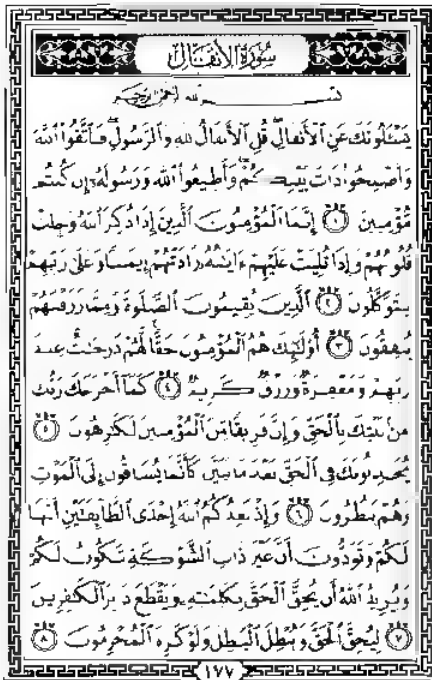 سُورَةُ الأَنفَالِ
بِسْمِ اللَّهِ الرَّحْمَٰنِ الرَّحِيمِ
يَسْـَٔلُونَكَ عَنِ ٱلْأَنفَالِ ۖ قُلِ ٱلْأَنفَالُ لِلَّهِ وَٱلرَّسُولِ ۖ فَٱتَّقُوا۟ ٱللَّهَ
وَأَصْلِحُوا۟ ذَاتَ بَيْنِكُمْ ۖ وَأَطِيعُوا۟ ٱللَّهَ وَرَسُولَهُۥٓ إِن كُنتُم
مُّؤْمِنِينَ ﴿١﴾ إِنَّمَا ٱلْمُؤْمِنُونَ ٱلَّذِينَ إِذَا ذُكِرَ ٱللَّهُ وَجِلَتْ
قُلُوبُهُمْ وَإِذَا تُلِيَتْ عَلَيْهِمْ ءَايَٰتُهُۥ زَادَتْهُمْ إِيمَٰنًا وَعَلَىٰ رَبِّهِمْ
يَتَوَكَّلُونَ ﴿٢﴾ ٱلَّذِينَ يُقِيمُونَ ٱلصَّلَوٰةَ وَمِمَّا رَزَقْنَٰهُمْ
يُنفِقُونَ ﴿٣﴾ أُو۟لَٰٓئِكَ هُمُ ٱلْمُؤْمِنُونَ حَقًّا ۚ لَّهُمْ دَرَجَٰتٌ عِندَ
رَبِّهِمْ وَمَغْفِرَةٌ وَرِزْقٌ كَرِيمٌ ﴿٤﴾ كَمَآ أَخْرَجَكَ رَبُّكَ
مِنۢ بَيْتِكَ بِٱلْحَقِّ وَإِنَّ فَرِيقًا مِّنَ ٱلْمُؤْمِنِينَ لَكَٰرِهُونَ ﴿٥﴾
يُجَٰدِلُونَكَ فِى ٱلْحَقِّ بَعْدَ مَا تَبَيَّنَ كَأَنَّمَا يُسَاقُونَ إِلَى ٱلْمَوْتِ
وَهُمْ يَنظُرُونَ ﴿٦﴾ وَإِذْ يَعِدُكُمُ ٱللَّهُ إِحْدَى ٱلطَّآئِفَتَيْنِ أَنَّهَا
لَكُمْ وَتَوَدُّونَ أَنَّ غَيْرَ ذَاتِ ٱلشَّوْكَةِ تَكُونُ لَكُمْ
وَيُرِيدُ ٱللَّهُ أَن يُحِقَّ ٱلْحَقَّ بِكَلِمَٰتِهِۦ وَيَقْطَعَ دَابِرَ ٱلْكَٰفِرِينَ
﴿٧﴾ لِيُحِقَّ ٱلْحَقَّ وَيُبْطِلَ ٱلْبَٰطِلَ وَلَوْ كَرِهَ ٱلْمُجْرِمُونَ ﴿٨﴾
١٧٧